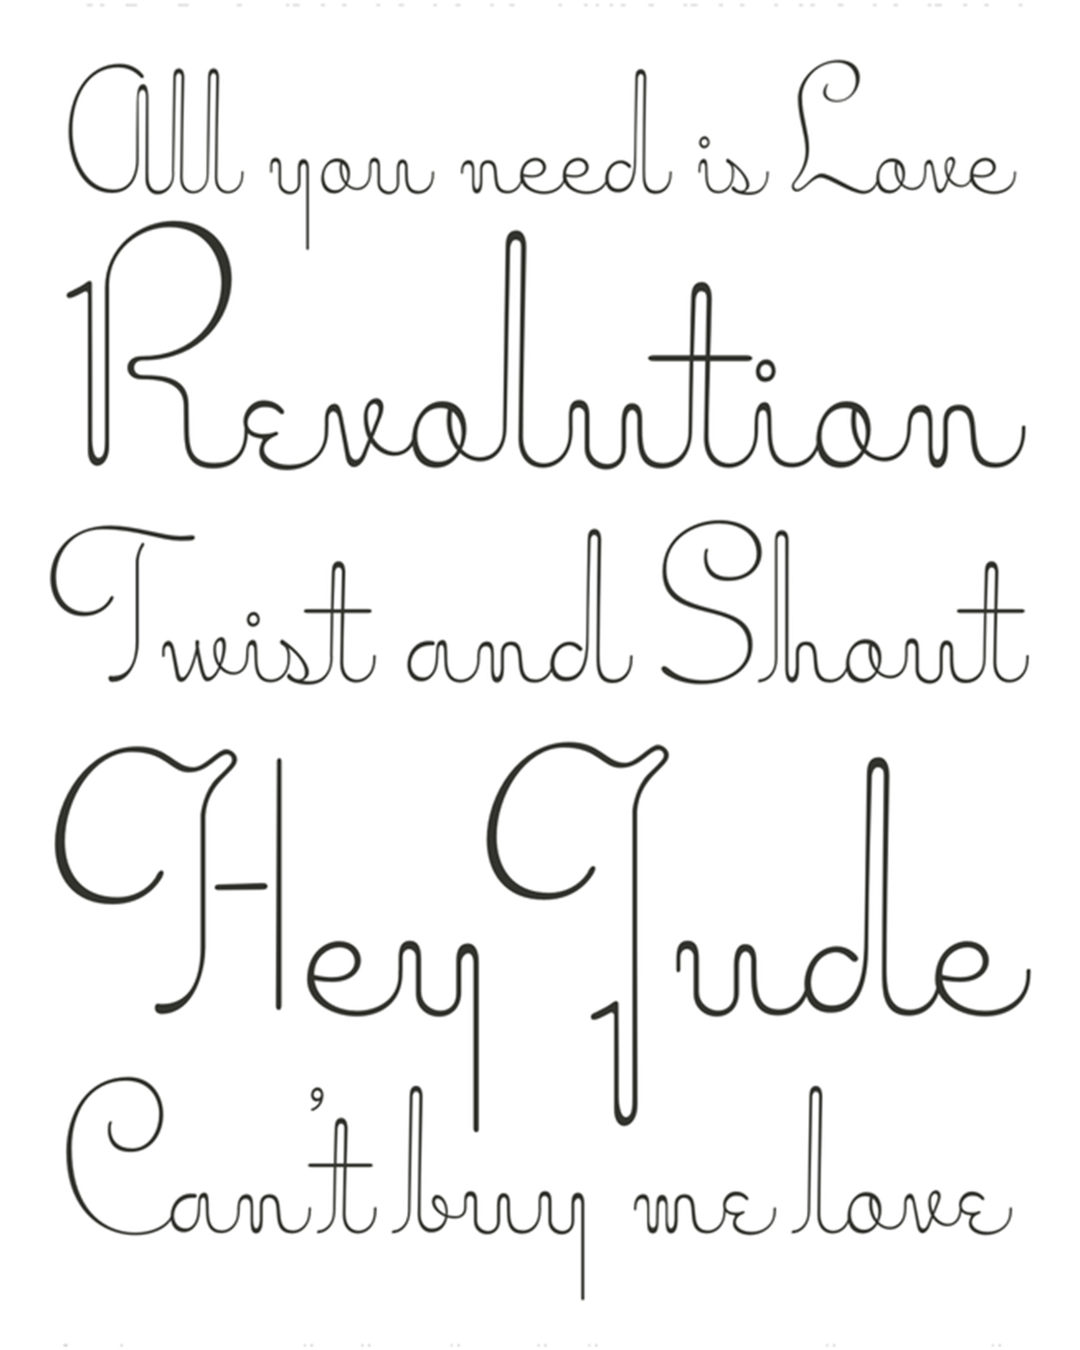 All you need is Love
Revolution
Twist and Shout
Hey Jude
Can't buy me love